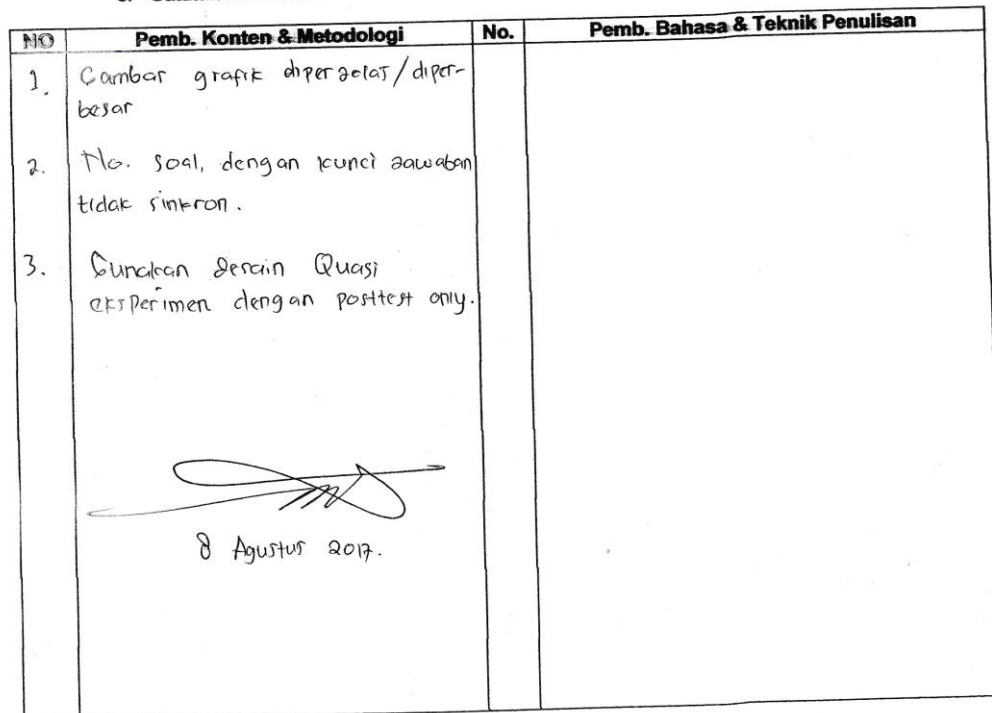 NO Pemb. Konten & Metodologi No. Pemb. Bahasa & Teknik Penulisan
1. Gambar grafik diperjelas/diper-
besar
2. No. soal, dengan kunci jawaban
tidak sinkron.
3. Gunakan desain Quasi
eksperimen dengan posttest only.
8 Agustus 2017.